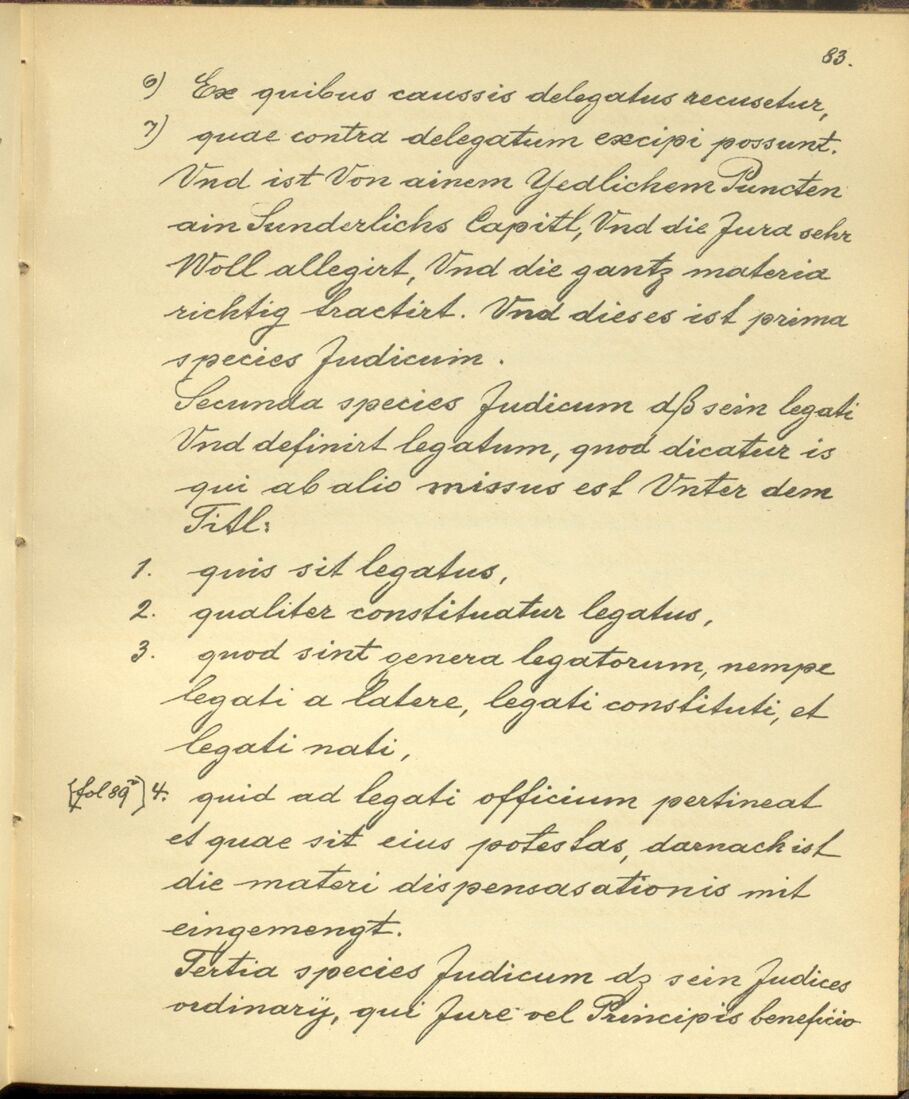 83.
6) Ex quibus caussis delegatus recusetur,
7) quae contra delegatum excipi possunt.
Vnd ist Von ainem Yedlichem Puncten
ain Sunderlichs Capitl, Vnd die Jura sehr
Woll allegirt, Vnd die gantz materia
richtig tractirt. Vnd dieses ist prima
species Judicum.
Secunda species Judicum dß sein legati
Vnd definirt legatum, quod dicatur is
qui ab alio missus est Vnter dem
Titl:
1. quis sit legatus,
2. qualiter constituatur legatus,
3. quod sint genera legatorum, nempe
legati a latere, legati constituti, et
legati nati,
[fol 89r] 4. quid ad legati officium pertineat
et quae sit eius potestas, darnach ist
die materi dispensasationis mit
eingemengt.
Tertia species Judicum dz sein Judices
ordinarij, qui Jure vel Principis beneficio